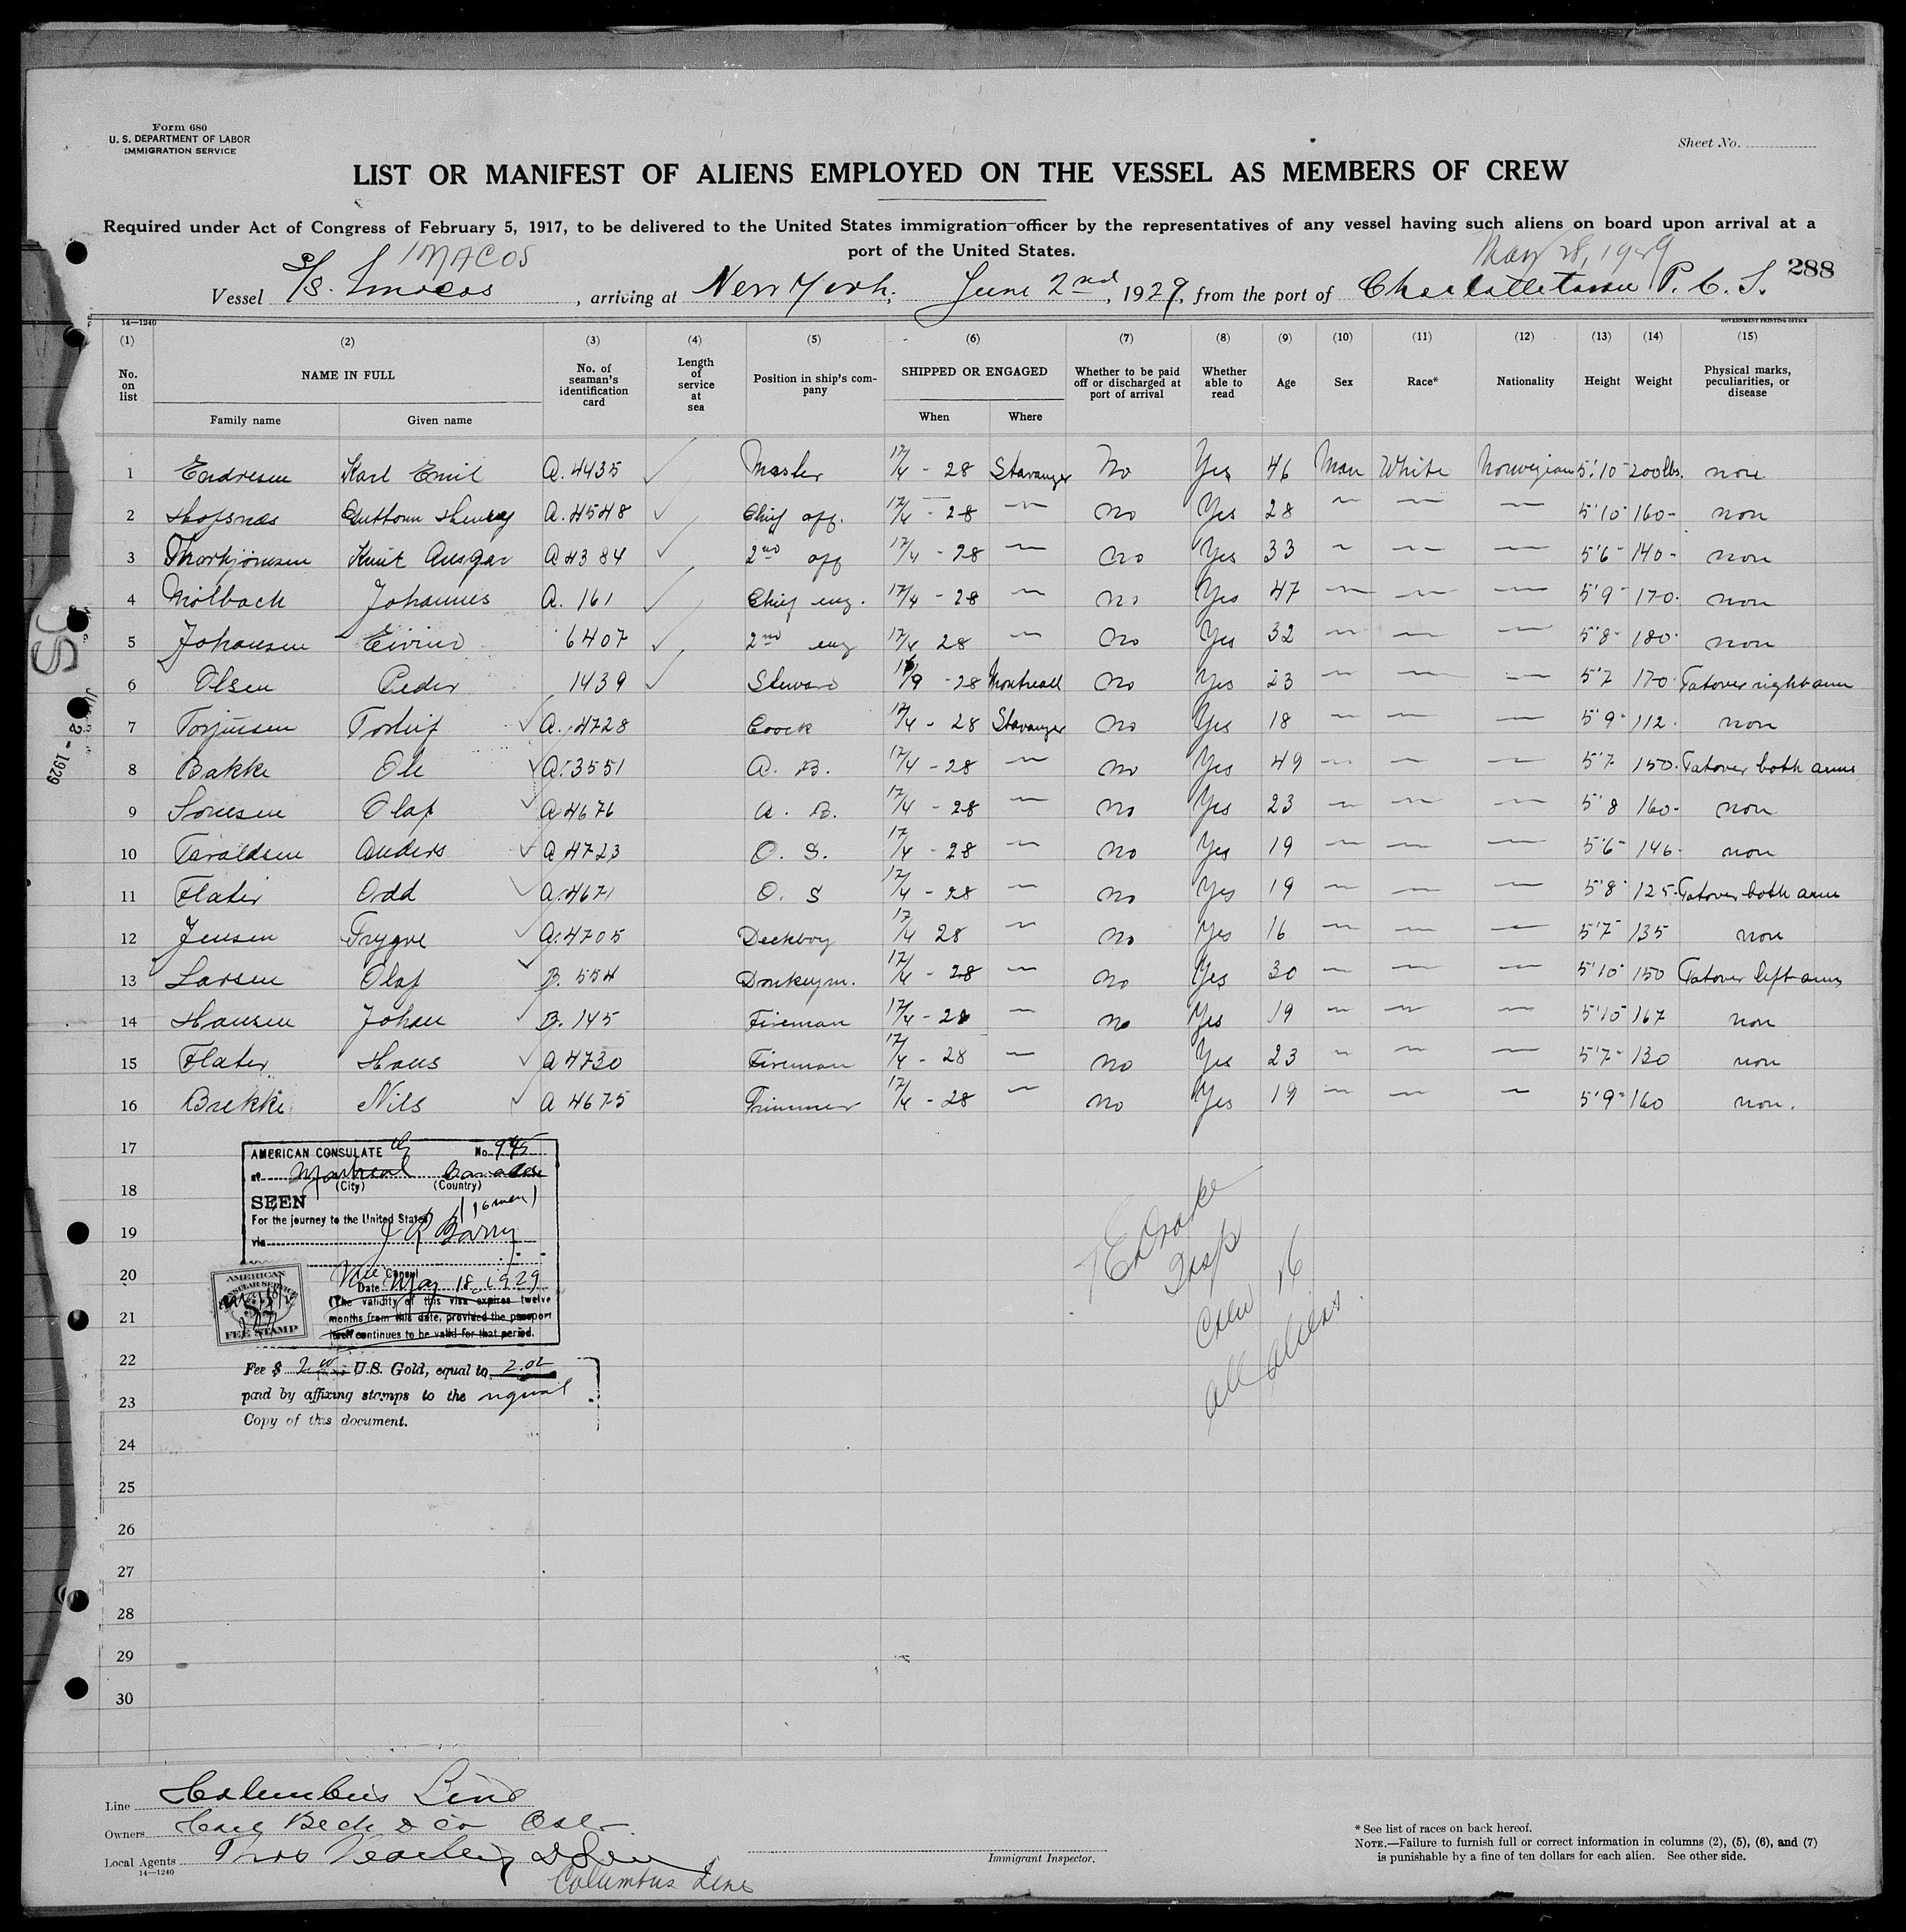 Form 680
U. S. DEPARTMENT OF LABOR
IMMIGRATION SERVICE
Sheet No.
LIST OR MANIFEST OF ALIENS EMPLOYED ON THE VESSEL AS MEMBERS OF CREW
Required under Act of Congress of February 5, 1917, to be delivered to the United States immigration officer by the representatives of any vessel having such aliens on board upon arrival at a
port of the United States.
IMACOS
May 28, 1929
288
Vessel S/S. Imacos, arriving at New York, June 2nd, 1929, from the port of Charlottetown P. E. I.
14—1240
GOVERNMENT PRINTING OFFICE
(1) (2) (3) (4) (5) (6) (7) (8) (9) (10) (11) (12) (13) (14) (15)
No. on list NAME IN FULL Family name Given name No. of seaman's identification card Length of service at sea Position in ship's company SHIPPED OR ENGAGED When Where Whether to be paid off or discharged at port of arrival Whether able to read Age Sex Race* Nationality Height Weight Physical marks, peculiarities, or disease
1 Endresen Karl Emil A. 4435 ✓ Master 17/4 - 28 Stavanger No Yes 46 Man White Norwegian 5'10" 200 lbs. non
2 A. 4548 ✓ Chief off. 17/4 - 28 — No Yes 28 — — — 5'10" 160- non
3 Thorbjörnsen Knut Ansgar A 4384 ✓ 2nd off 17/4 - 28 — No Yes 33 — — — 5'6" 140- non
4 Mölbach Johannes A. 161 ✓ Chief eng. 17/4 - 28 — No Yes 47 — — — 5'9" 170. non
5 Johansen Eivind 6407 ✓ 2nd eng 17/4 28 — No Yes 32 — — — 5'8" 180. non
6 Olsen Peder 1439 ✓ Steward /9 - 28 Montreall No Yes 23 — — — 5'7 170. Tatover right arm
7 Torjussen Torleif ✓ A. 4728 Coock 17/4 - 28 Stavanger No Yes 18 — — — 5'9" 112. non
8 Bakke Ole ✓ A. 3551 A. B. 17/4 - 28 — No Yes 49 — — — 5'7 150. Tatover both arms
9 Olaf ✓ A 4676 A. B. 17/4 - 28 — No Yes 23 — — — 5'8 160- non
10 Taraldsen Anders ✓ A 4723 O. S. 17/4 - 28 — No Yes 19 — — — 5'6" 146- non
11 Odd ✓ A. 4671 O. S 17/4 - 28 — No Yes 19 — — — 5'8" 125. Tatover both arm
12 Jensen Trygve ✓ A. 4705 Deckboy 17/4 28 — No Yes 16 — — — 5'7" 135 non
13 Larsen Olaf ✓ B. 554 Donkeym. 17/4 - 28 — No Yes 30 — — — 5'10" 150 Tatover left arms
14 Hansen Johan ✓ B. 145 Fireman 17/4 - 28 — No Yes 19 — — — 5'10" 167 non
15 Hans ✓ A 4730 Fireman 17/4 - 28 — No Yes 23 — — — 5'7" 130 non
16 Brekke Nils ✓ A 4675 Trimmer 17/4 - 28 — No Yes 19 — — — 5'9" 160 non.
17
18
19
20
21
22
23
24
25
26
27
28
29
30
AMERICAN CONSULATE No. 945
at Montreal Canada
(City) (Country)
SEEN (16 men)
For the journey to the United States
via J R Barry
Vice Consul
Date May 18, 1929
(The validity of this visa expires twelve
months from this date, provided the passport
itself continues to be valid for that period.
AMERICAN
CONSULAR SERVICE
$2
FEE STAMP
Fee $ 2.00 U.S. Gold, equal to 2.02
paid by affixing stamps to the
Copy of this document.
Drake
Insp
Crew 16
all aliens
2 - 1929
Line Columbus Line
Owners Beck & Co Oslo
Local Agents
14—1240
Columbus Line
Immigrant Inspector.
* See list of races on back hereof.
NOTE.—Failure to furnish full or correct information in columns (2), (5), (6), and (7)
is punishable by a fine of ten dollars for each alien. See other side.